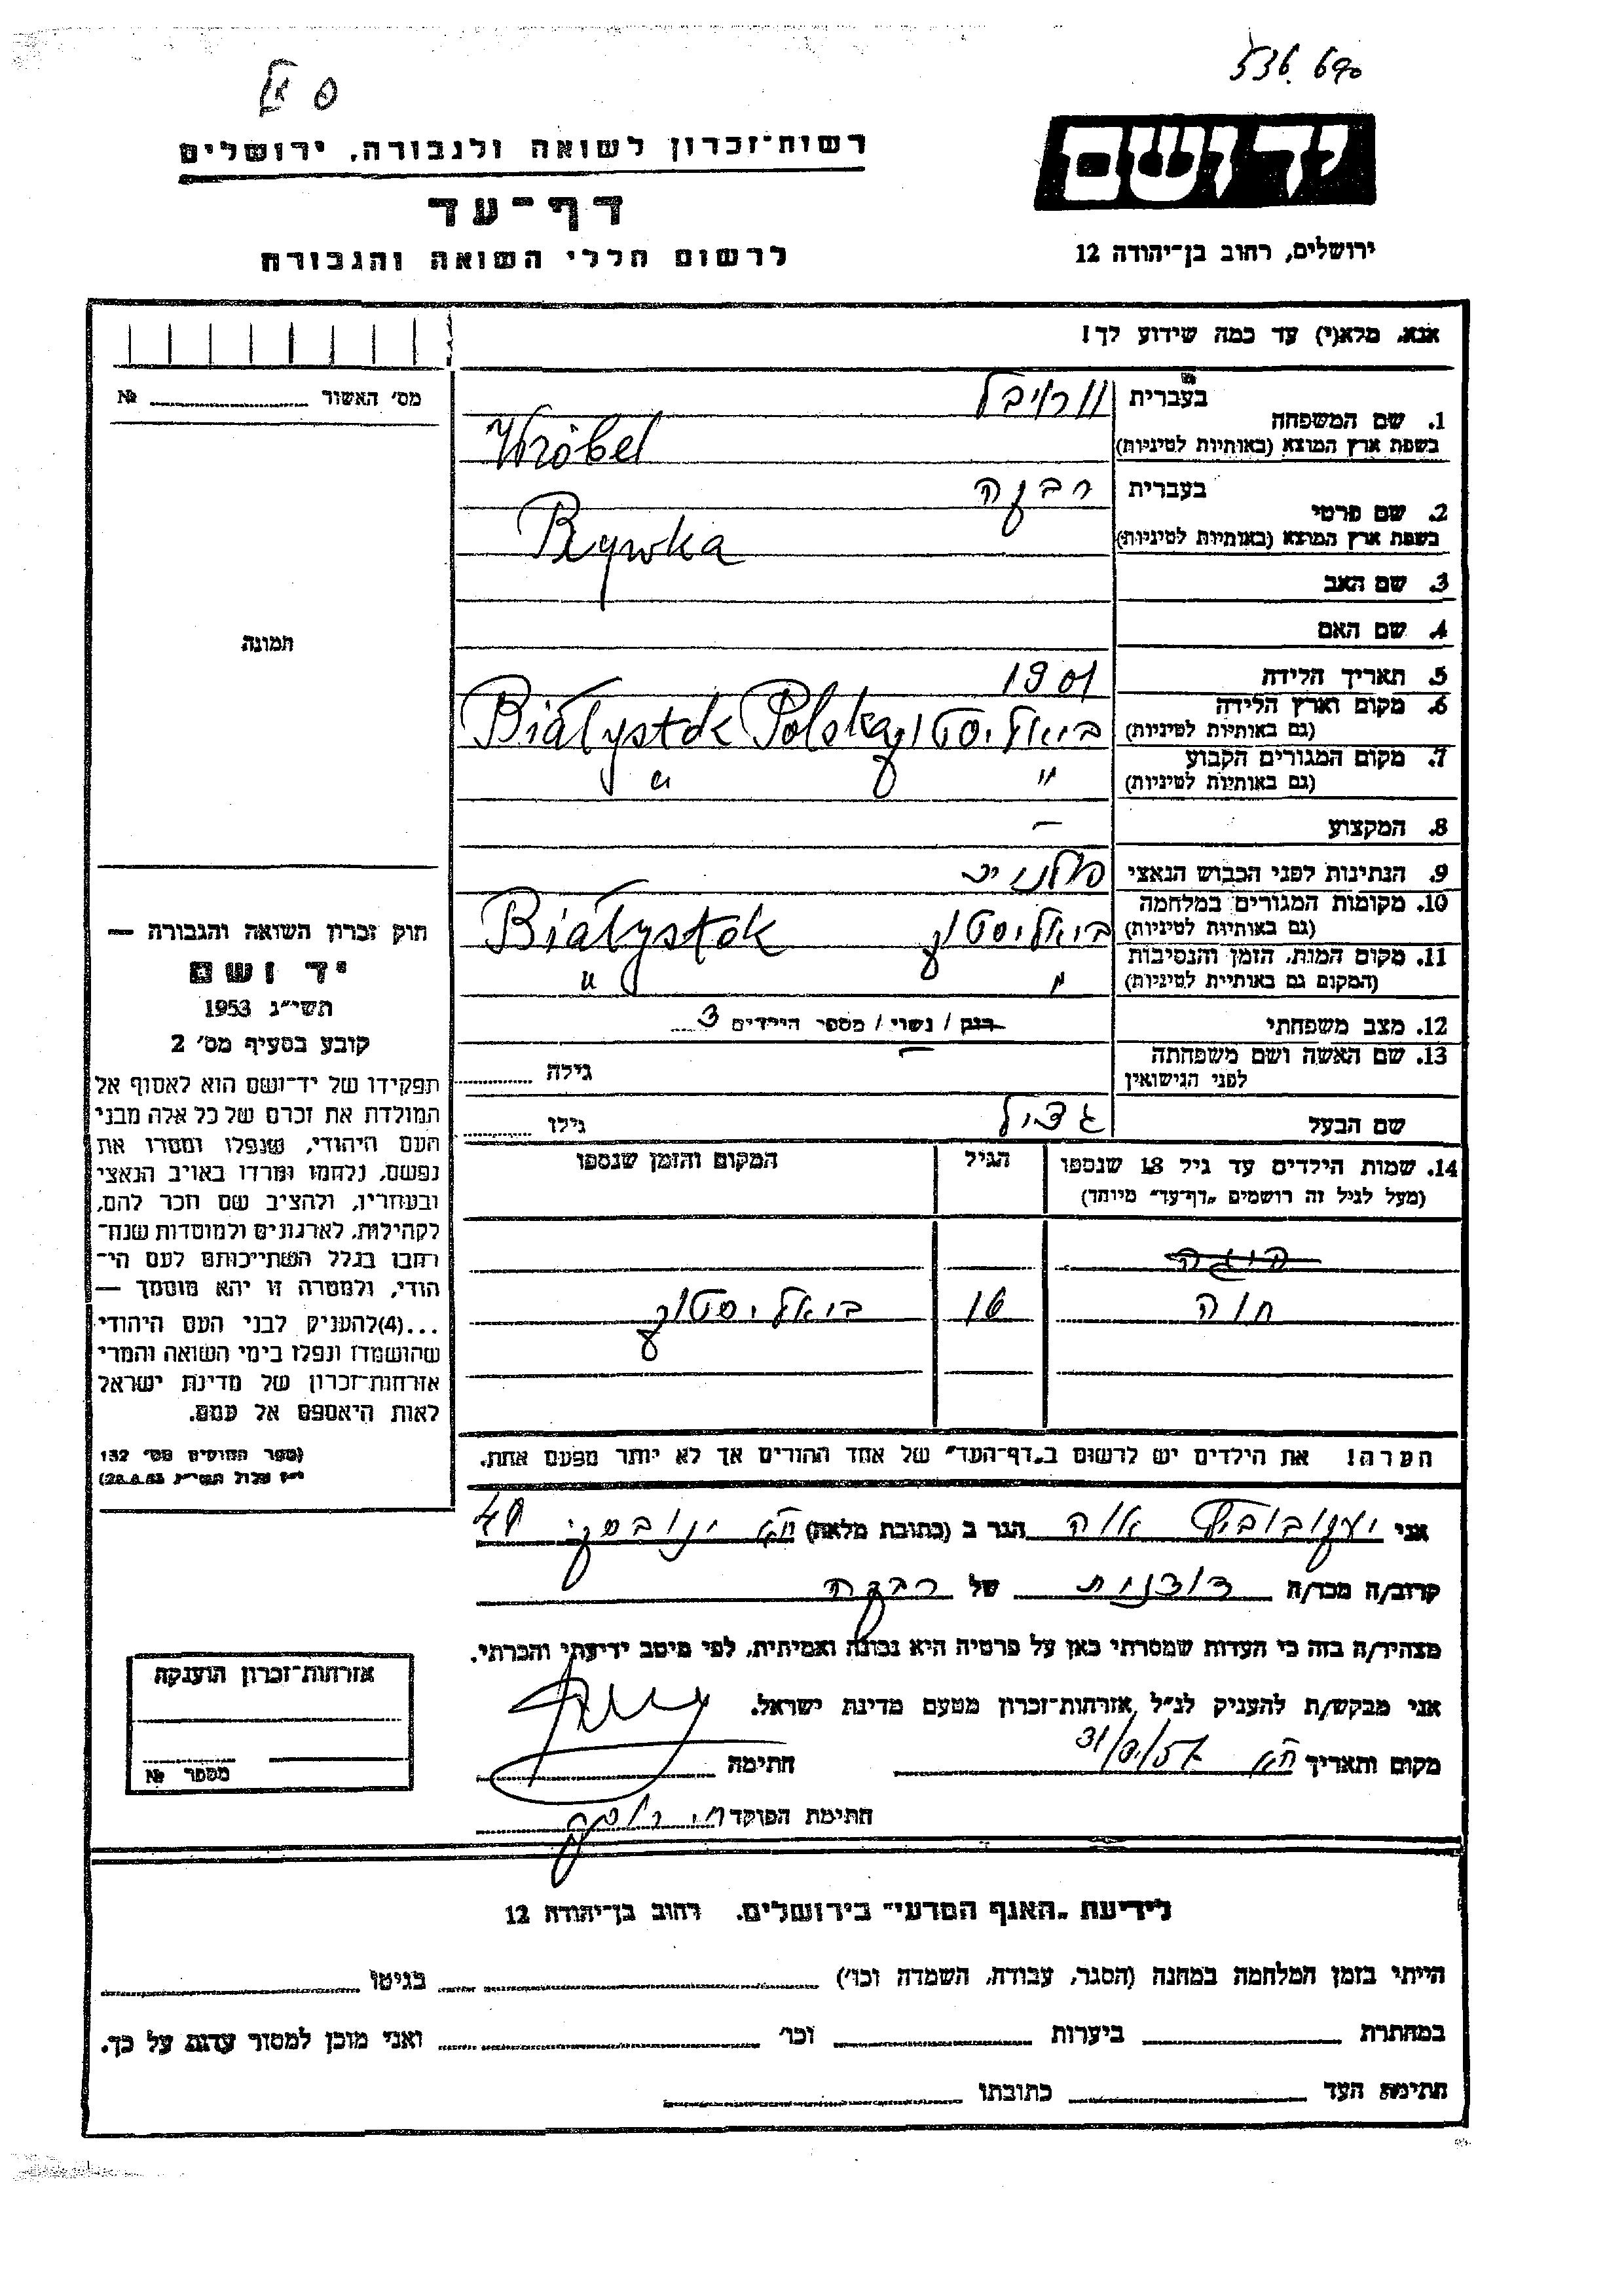 536.690
רשות־זכרון לשואה ולגבורה, ירושלים
יד ושם
דף־עד
לרשום חללי השואה והגבורה
ירושלים, רחוב בן־יהודה 12
אנא, מלא(י) עד כמה שידוע לך!
מס' האשור №
1. שם המשפחה בעברית וורויבל
בשפת ארץ המוצא (באותיות לטיניות) Wróbel
2. שם פרטי בעברית רבקה
בשפת ארץ המוצא (באותיות לטיניות) Rywka
3. שם האב
4. שם האם
תמונה
5. תאריך הלידה 1901
6. מקום וארץ הלידה (גם באותיות לטיניות) ביאליסטוק Białystok Polska
7. מקום המגורים הקבוע (גם באותיות לטיניות) " "
8. המקצוע —
9. הנתינות לפני הכבוש הנאצי פולנית
10. מקומות המגורים במלחמה (גם באותיות לטיניות) ביאליסטוק Białystok
11. מקום המות, הזמן והנסיבות (המקום גם באותיות לטיניות) " "
12. מצב משפחתי רוק / נשוי / מספר הילדים 3
13. שם האשה ושם משפחתה לפני הנישואין — גילה
שם הבעל גילו
14. שמות הילדים עד גיל 18 שנספו הגיל המקום והזמן שנספו
(מעל לגיל זה רושמים "דף־עד" מיוחד)
חוה 16 ביאליסטוק
הערה! את הילדים יש לרשום ב"דף־העד" של אחד ההורים אך לא יותר מפעם אחת.
חוק זכרון השואה והגבורה —
יד ושם
תשי"ג 1953
קובע בסעיף מס' 2
תפקידו של יד־ושם הוא לאסוף אל
המולדת את זכרם של כל אלה מבני
העם היהודי, שנפלו ומסרו את
נפשם, נלחמו ומרדו באויב הנאצי
ובעוזריו, ולהציב שם וזכר להם,
לקהילות, לארגונים ולמוסדות שנח־
רבו בגלל השתייכותם לעם הי־
הודי, ולמטרה זו יהא מוסמך —
...(4)להעניק לבני העם היהודי
שהושמדו ונפלו בימי השואה והמרי
אזרחות־זכרון של מדינת ישראל
לאות היאספם אל עמם.
(ספר החוקים מס' 132
י"ז אלול תשי"ג 28.8.53)
אני יעקובוביץ הגר ב (כתובת מלאה) ת"א
קרוב/ה מכר/ה של רבקה
מצהיר/ה בזה כי העדות שמסרתי כאן על פרטיה היא נכונה ואמיתית, לפי מיטב ידיעתי והכרתי.
אני מבקש/ת להעניק לנ"ל אזרחות־זכרון מטעם מדינת ישראל.
מקום ותאריך ת"א חתימה
חתימת הפוקד
אזרחות־זכרון הוענקה
מספר №
לידיעת "האגף המדעי" בירושלים, רחוב בן־יהודה 12
הייתי בזמן המלחמה במחנה (הסגר, עבודה, השמדה וכו') בגיטו
במחתרת ביערות וכו' ואני מוכן למסור עדות על כך.
חתימת העד כתובתו